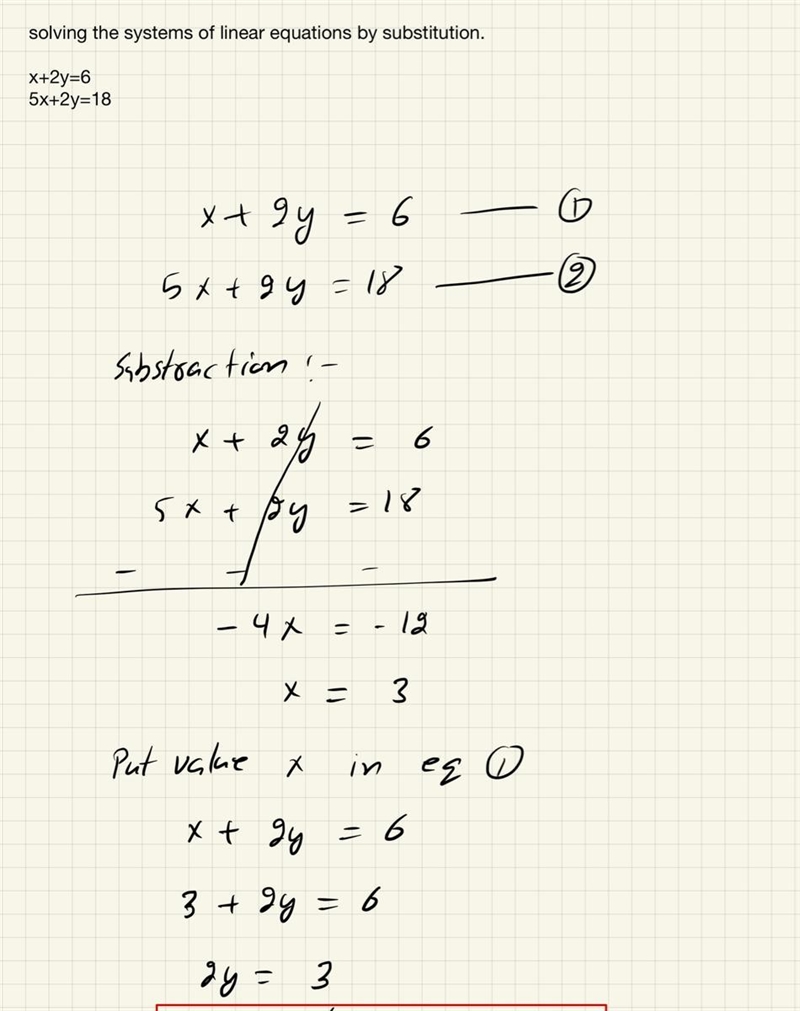 solving the systems of linear equations by substitution.
x+2y=6
5x+2y=18
x + 2y = 6 —— ①
5x + 2y = 18 —— ②
Substraction :-
x + 2y = 6
5x + 2y = 18
- - -
-4x = -12
x = 3
Put value x in eq ①
x + 2y = 6
3 + 2y = 6
2y = 3